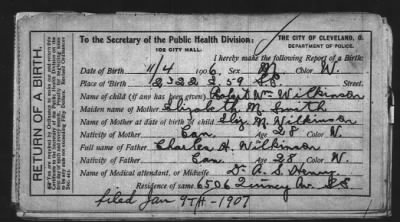 To the Secretary of the Public Health Division: THE CITY OF CLEVELAND, O.
DEPARTMENT OF POLICE.
102 CITY HALL:
I hereby make the following Report of a Birth:
Date of Birth 11/4 1906 Sex M. Color W.
Place of Birth 2322 E 59 St. Street.
Name of child (if any has been given) Robert Wm Wilkinson
Maiden name of Mother Elizabeth M. Smith
Name of Mother at date of birth of child Eliz M. Wilkinson
Nativity of Mother Can. Age 28 Color W.
Full name of Father Charles H. Wilkinson
Nativity of Father Can. Age 28 Color W.
Name of Medical attendant, or Midwife Dr A. S. Henry
Residence of same 6506 Quincy Av. SE
filed Jan 9TH - 1907
RETURN OF A BIRTH.